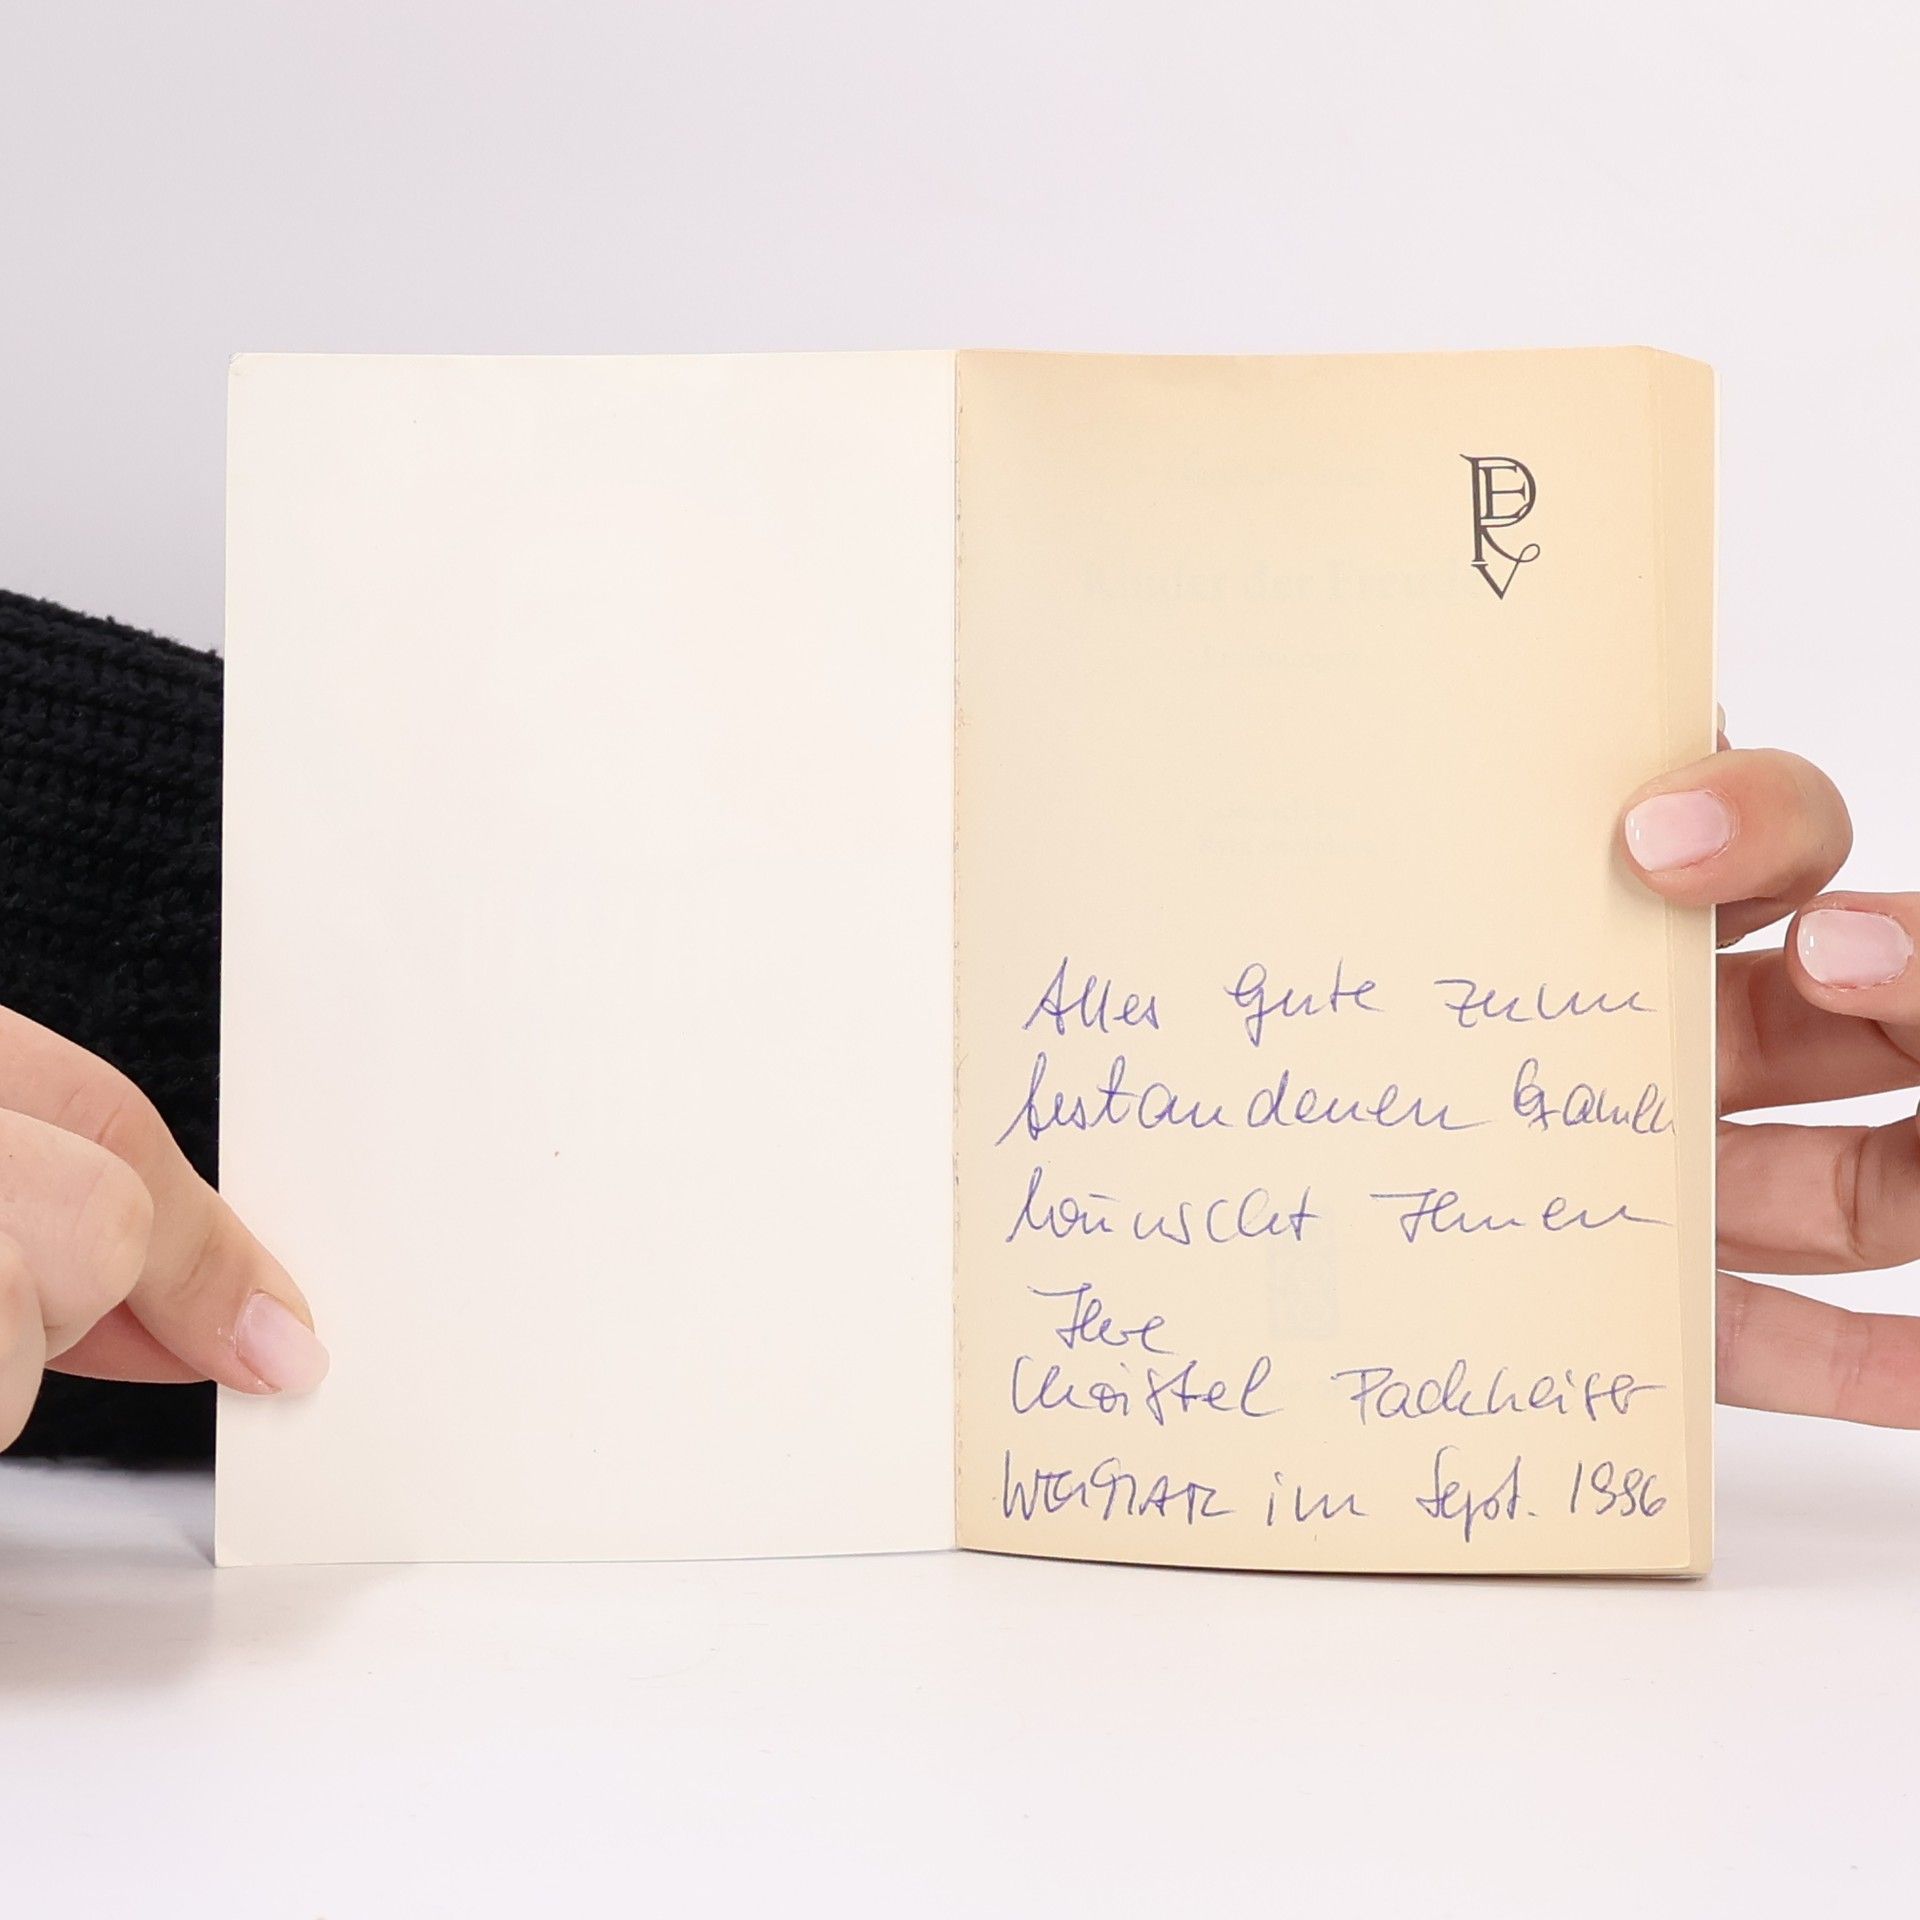 PEV
Alles Gute zum
bestandenen Examen
wünscht Ihnen
Ihre
Christel Packheiser
WEIMAR im Sept. 1996